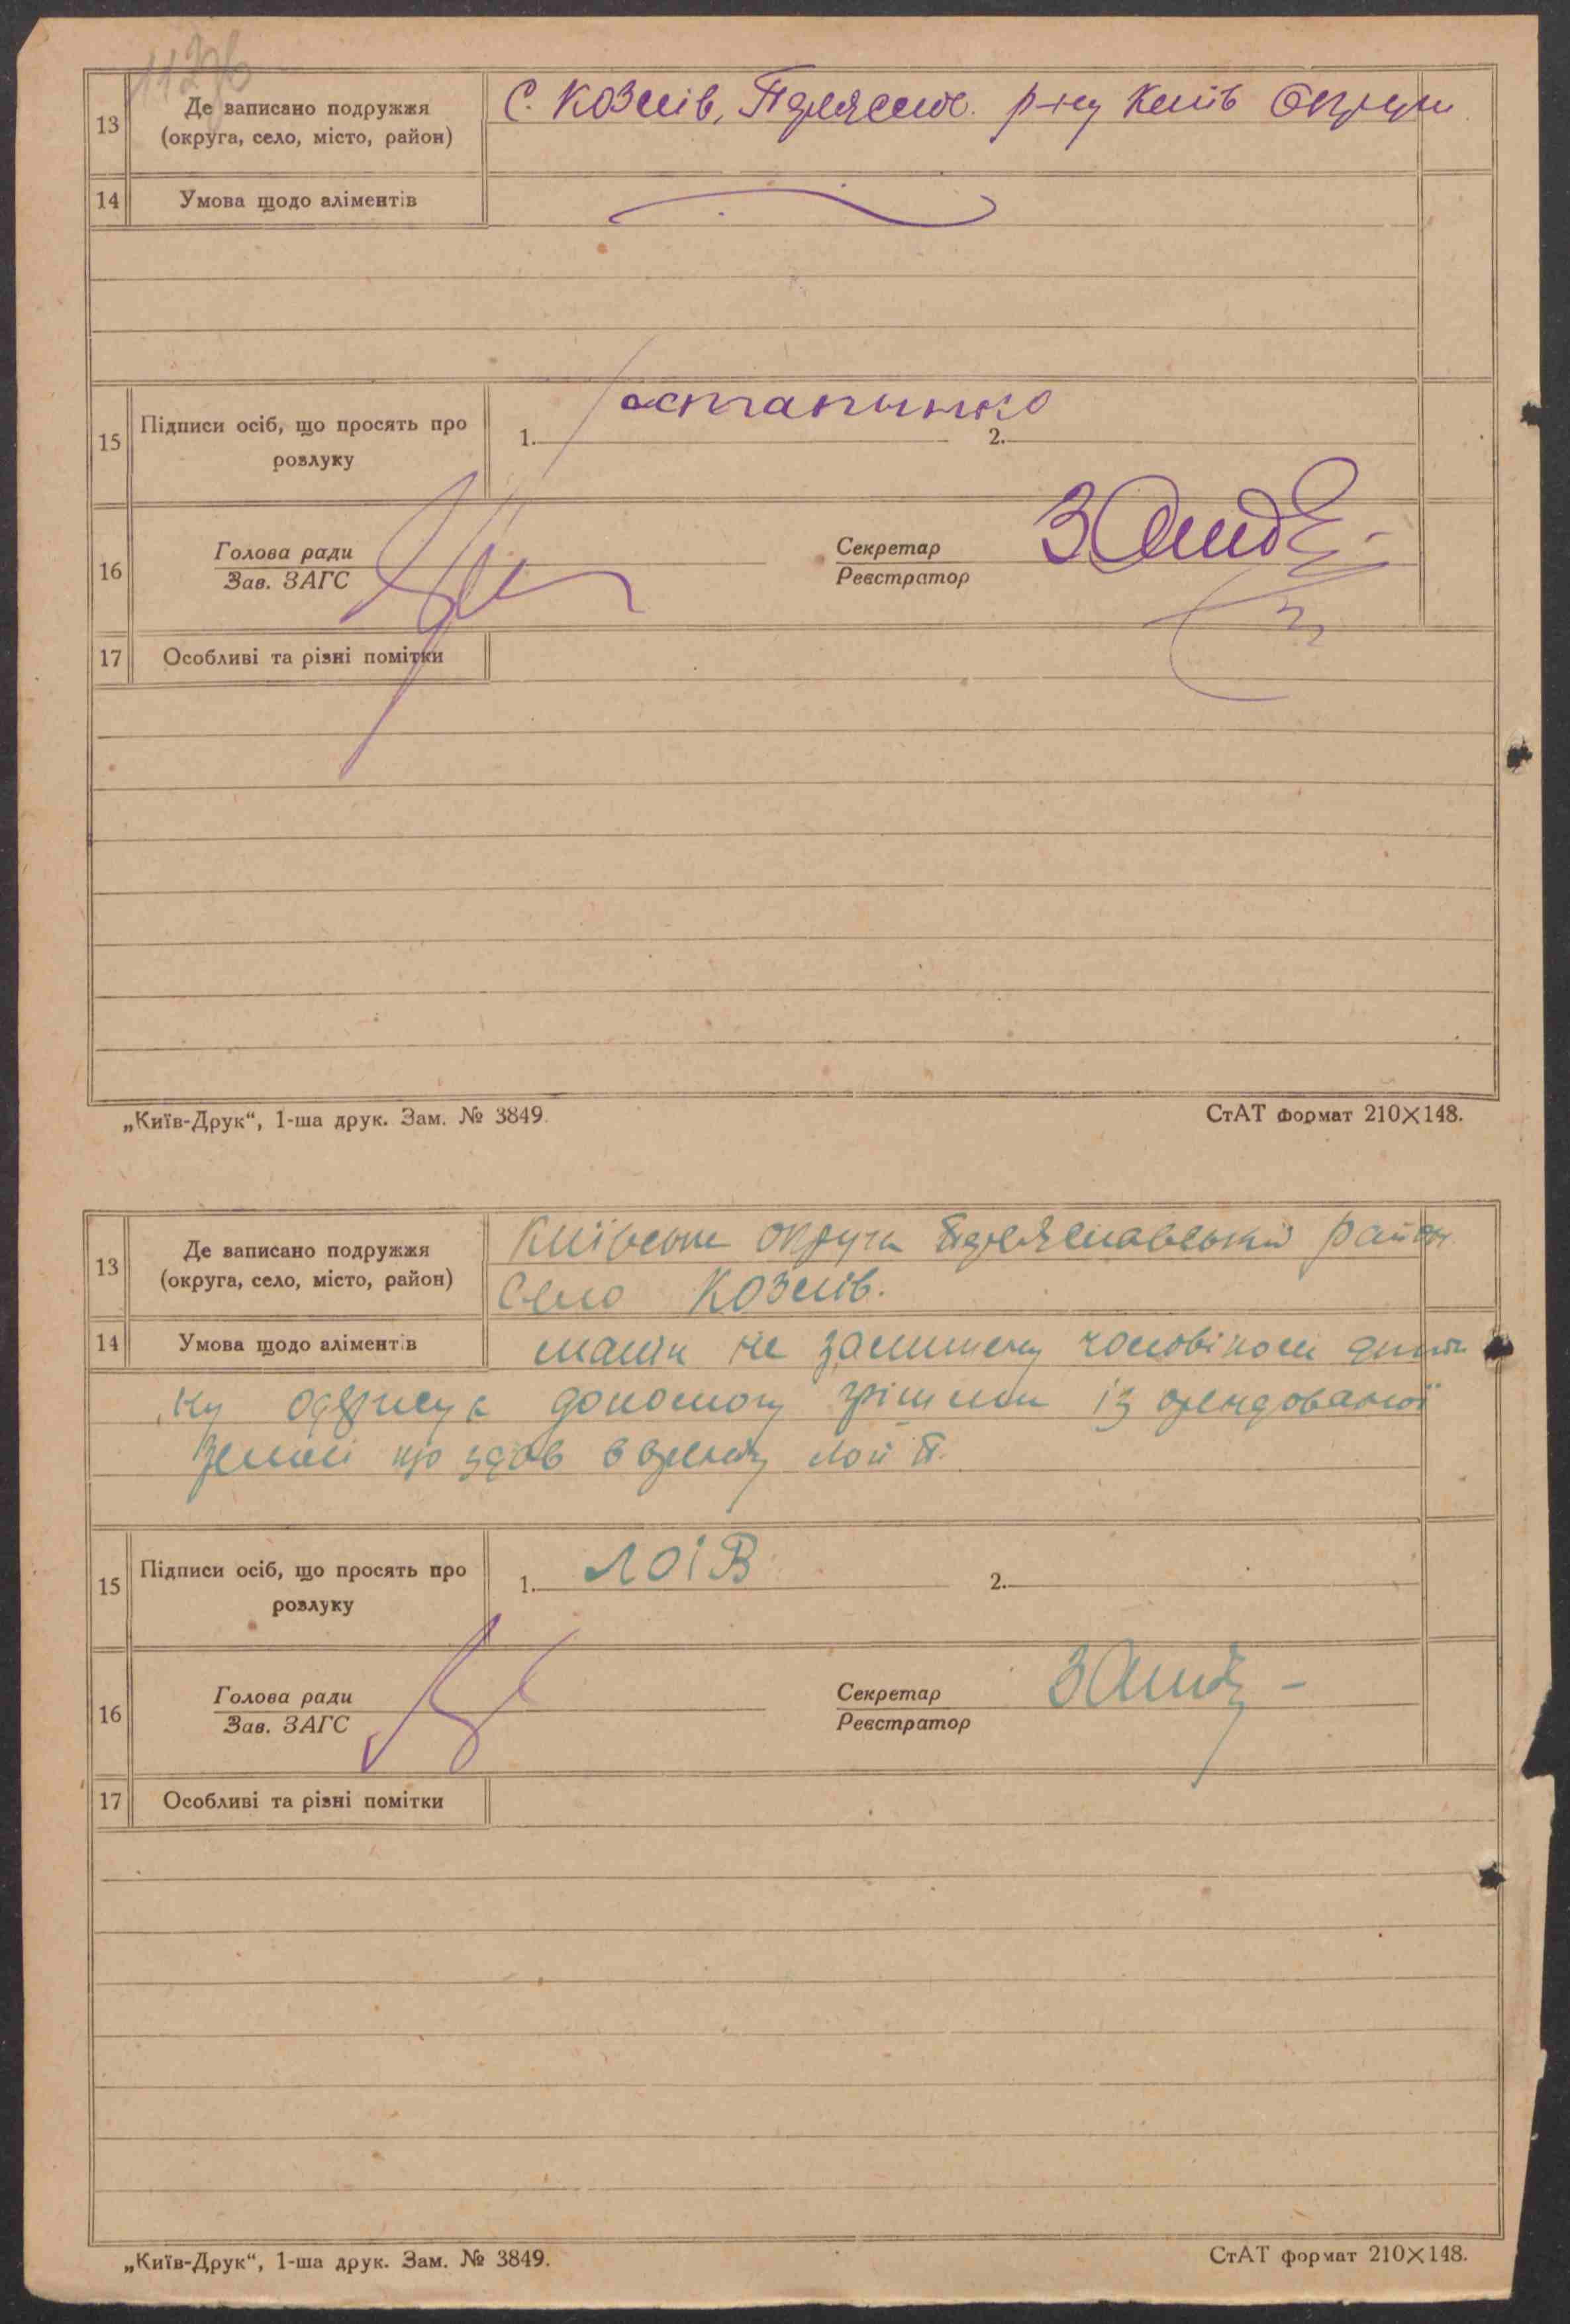 13
Де записано подружжя
(округа, село, місто, район)
С. Козлів, Переяслов. р-ну Київ Округи
14
Умова щодо аліментів
15
Підписи осіб, що просять про
розлуку
1.
остапинко
2.
16
Голова ради
Зав. ЗАГС
Секретар
Реєстратор
17
Особливі та різні помітки
„Київ-Друк“, 1-ша друк. Зам. № 3849.
СтАТ формат 210×148.
13
Де записано подружжя
(округа, село, місто, район)
Київська округа Переяславський район
Село Козлів.
14
Умова щодо аліментів
на залишену чоловіком дити
ку одержує допомогу грішми із орендованої
землі що здав в оренду Лой П.
15
Підписи осіб, що просять про
розлуку
1. ЛОіВ
2.
16
Голова ради
Зав. ЗАГС
Секретар
Реєстратор
17
Особливі та різні помітки
„Київ-Друк“, 1-ша друк. Зам. № 3849.
СтАТ формат 210×148.